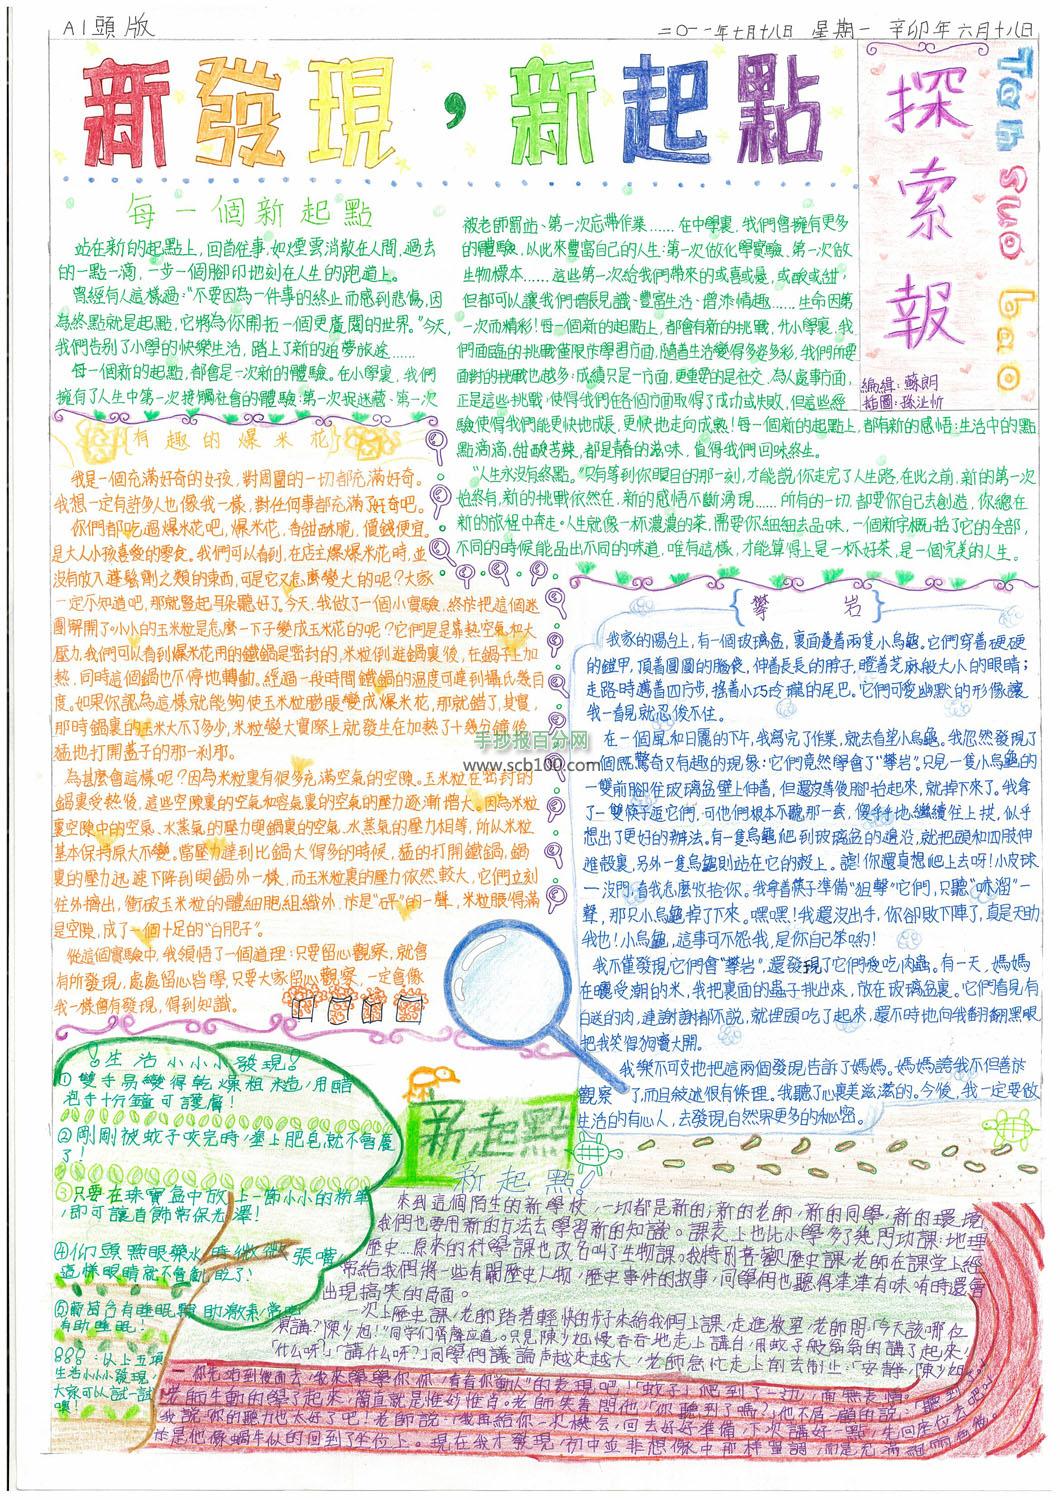 A1頭版
二〇一一年七月十八日 星期一 辛卯年六月十八日
新發現，新起點
探索報
Tan Suo bao
編緝：蘇朗
插圖：孫沚忻
每一個新起點
站在新的起點上，回首往事，如煙雲消散在人間，過去
的一點一滴，一步一個腳印地刻在人生的跑道上。
曾經有人這樣過："不要因為一件事的終止而感到悲傷，因
為終點就是起點，它將為你開拓一個更廣闊的世界。"今天，
我們告别了小學的快樂生活，踏上了新的追夢旅途……
每一個新的起點，都會是一次新的體驗。在小學裏，我們
擁有了人生中第一次接觸社會的體驗：第一次捉迷藏、第一次
被老師罰站、第一次忘帶作業……在中學裏，我們會擁有更多
的體驗，以此來豐富自己的人生：第一次做化學實驗、第一次做
生物標本……這些第一次給我們帶來的或喜或憂，或酸或甜，
但都可以讓我們增長見識、豐富生活、增添情趣……生命因第
一次而精彩！每一個新的起點上，都會有新的挑戰，小學裏，我
們面臨的挑戰僅限於學習方面，隨着生活變得多姿多彩，我們所要
面對的挑戰也越多：成績只是一方面，更重要的是社交、為人處事方面，
正是這些挑戰，使得我們在各個方面取得了成功或失敗，但這些經
驗使得我們能更快地成長，更快地走向成熟！每一個新的起點上，都有新的感悟：生活中的點
點滴滴，甜酸苦辣，都是青春的滋味，值得我們回味終生。
"人生永没有終點。"只有等到你瞑目的那一刻，才能説你走完了人生路，在此之前，新的第一次
始終有，新的挑戰依然在，新的感悟不斷湧現……所有的一切，都要你自己去創造，你總在
新的旅程中奔走。人生就像一杯濃濃的茶，需要你細細去品味，一個新字概括了它的全部，
不同的時候能品出不同的味道，唯有這樣，才能算得上是一杯好茶，是一個完美的人生。
有趣的爆米花
我是一個充滿好奇的女孩，對周圍的一切都充滿好奇。
我想一定有許多人也像我一樣，對任何事都充滿了好奇吧。
你們都吃過爆米花吧，爆米花，香甜酥脆，價錢便宜。
是大人小孩喜愛的零食。我們可以看到，在店主爆爆米花時，並
没有放入蓬鬆劑之類的東西，可是它又怎麽變大的呢？大家
一定不知道吧，那就豎起耳朵聽好了。今天，我做了一個小實驗，終於把這個迷
團解開了。小小的玉米粒是怎麽一下子變成玉米花的呢？它們是是靠熱空氣和大
壓力，我們可以看到爆米花用的鐵鍋是密封的，米粒倒進鍋裏後，在鍋子上加
熱，同時這個鍋也不停地轉動。經過一段時間，鐵鍋的溫度可達到攝氏幾百
度。如果你認為這樣就能夠使玉米粒膨脹變成爆米花，那就錯了，其實，
那時鍋裏的玉米大不了多少，米粒變大實際上就發生在加熱了十幾分鐘後，
猛地打開蓋子的那一刹那。
為甚麽會這樣呢？因為米粒裏有很多充滿空氣的空隙。玉米粒在密封的
鍋裏受熱後，這些空隙裏的空氣和容氣裏的空氣的壓力逐漸增大。因為米粒
裏空隙中的空氣、水蒸氣的壓力與鍋裏的空氣、水蒸氣的壓力相等，所以米粒
基本保持原大不變。當壓力達到比鍋大得多的時候，猛的打開鐵鍋，鍋
裏的壓力迅速下降到與鍋外一樣，而玉米粒裏的壓力依然較大，它們立刻
往外擠出，衝破玉米粒的體細胞組織外，於是"砰"的一聲，米粒脹得滿
是空隙，成了一個十足的"白肥子"。
從這個實驗中，我領悟了一個道理：只要留心觀察，就會
有所發現，處處留心皆學，只要大家留心觀察，一定會像
我一樣會有發現，得到知識。
攀岩
我家的陽台上，有一個玻璃盆，裏面養着兩隻小烏龜。它們穿着硬硬
的鎧甲，頂着圓圓的腦袋，伸着長長的脖子，瞪着芝麻般大小的眼睛；
走路時邁着四方步，搖着小巧玲瓏的尾巴。它們可愛幽默的形像讓
我一看見就忍俊不住。
在一個風和日麗的下午，我寫完了作業，就去看望小烏龜。我忽然發現了
一個既驚奇又有趣的現象：它們竟然學會了"攀岩"。只見一隻小烏龜的
一雙前腳往玻璃盆壁上伸着，但還没等後腳抬起來，就掉下來了。我拿
了一雙筷子逗它們，可他們根本不聽那一套，傻乎乎地繼續往上拱，似乎
想出了更好的辦法。有一隻烏龜爬到玻璃盆的邊沿，就把頭和四肢伸
進殼裏，另外一隻烏龜則站在它的殼上。謔！你還真想爬上去呀！小皮球
一没門，看我怎麽收拾你。我拿着筷子準備"狙擊"它們，只聽"哧溜"一
聲，那只小烏龜掉了下來。嘿嘿！我還没出手，你卻敗下陣了，真是天助
我也！小烏龜，這事可不怨我，是你自己笨喲！
我不僅發現它們會"攀岩"，還發現了它們愛吃肉蟲。有一天，媽媽
在曬受潮的米，我把裏面的蟲子挑出來，放在玻璃盆裏。它們看見有
白送的肉，連謝謝都不説，就埋頭吃了起來，還不時地向我翻翻黑眼
把我笑得狗竇大開。
我樂不可支地把這兩個發現告訴了媽媽。媽媽誇我不但善於
觀察了，而且敍述很有條理。我聽了心裏美滋滋的。今後，我一定要做
生活的有心人，去發現自然界更多的秘密。
手抄报百分网
www.scb100.com
生活小小小發現！
①雙手易變得乾燥粗糙，用醋
泡手十分鐘可護膚！
②剛剛被蚊子咬完時，塗上肥皂就不會癢
了！
③只要在珠寶盒中放上一節小小的粉筆，
即可讓首飾常保光澤！
④仰頭點眼藥水時微微張嘴，
這樣眼睛就不會亂眨了！
⑤葡萄含有睡眠輔助激素，常吃
有助睡眠！
888：以上五項
生活小小小發現，
大家可以試一試
噢！
新起點
新起點！
來到這個陌生的新學校，一切都是新的；新的老師，新的同學，新的環境。
我們也要用新的方法去學習新的知識。課表上也比小學多了幾門功課：地理
歷史…原來的科學課也改名叫了生物課。我特别喜歡歷史課，老師在課堂上經
常給我們將一些有關歷史人物，歷史事件的故事，同學們也聽得津津有味，有時還會
出現搞笑的局面。
一次上歷史課，老師踏着輕快的步子來給我們上課，走進教室，老師問"今天該哪位
演講？""陳少旭！"同學們齊聲應道。只見陳少旭慢吞吞地走上講台，用蚊子般嗡嗡的講了起來！
"什么呀！""講什么呀？"同學們議論声越來越大，老師急忙走上前去制止："安靜，陳少旭
一你先站到後面去，我來學學你
老師生動的學了起來，簡直就是惟妙惟肖。老師笑着問他"你聽到了嗎？"他不屑一顧的説："聽到了。"
我説"你的聽力也太好了吧！老師説："我再給你一次機会，回去好好準備，下次講好一點，先回座位去吧？"
於是他像蝸牛似的回到了坐位上。現在我才發現，初中並非想像中那樣單調，而是充滿